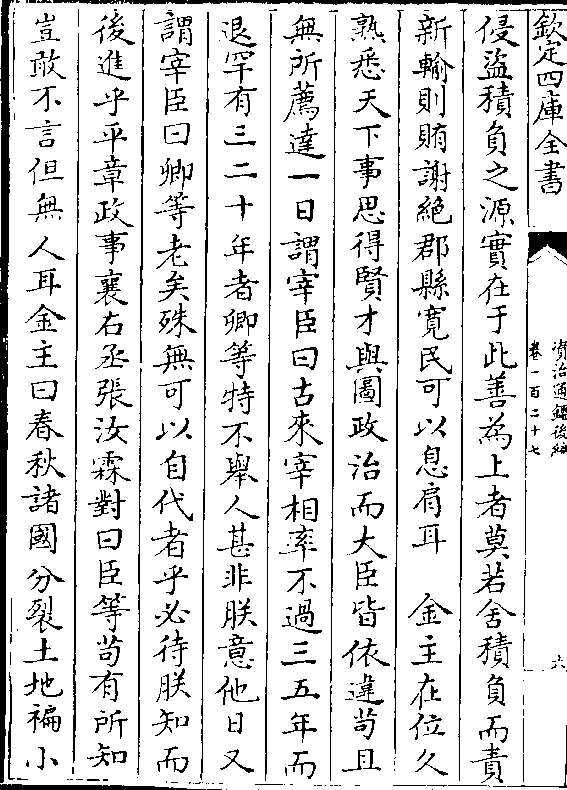 欽定四庫全書
資治通鑑後編
卷一百二十七
六
侵盜積負之源實在于此善為上者莫若舍積負而責
新輸則賄謝絕郡縣寛民可以息肩耳　金主在位久
熟悉天下事思得賢才與圖政治而大臣皆依違苟且
無所薦達一日謂宰臣曰古來宰相率不過三五年而
退罕有三二十年者卿等特不舉人甚非朕意他日又
謂宰臣曰卿等老矣殊無可以自代者乎必待朕知而
後進乎平章政事襄右丞張汝霖對曰臣等苟有所知
豈敢不言但無人耳金主曰春秋諸國分裂土地褊小